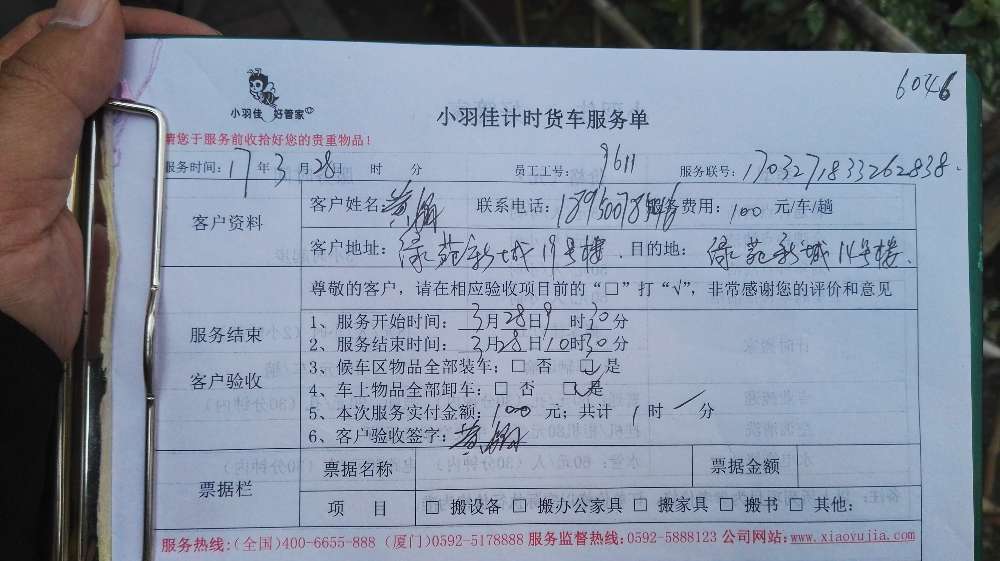 6046
小羽佳 好管家
小羽佳计时货车服务单
请您于服务前收拾好您的贵重物品！
服务时间：17年3月28日 时 分 员工工号：9611 服务联号：1703271833262838.
客户资料
客户姓名：黄 联系电话：费用：100 元/车/趟
客户地址：绿苑新城19号楼. 目的地：绿苑新城14号楼.
尊敬的客户，请在相应验收项目前的“□”打“√”，非常感谢您的评价和意见
服务结束
客户验收
1、服务开始时间：3月28日9时30分
2、服务结束时间：3月28日10时30分
3、候车区物品全部装车：□ 否 □是
4、车上物品全部卸车：□ 否 □是
5、本次服务实付金额：100 元；共计 1 时 / 分
6、客户验收签字：黄
票据栏
票据名称 票据金额
项 目 □ 搬设备 □ 搬办公家具 □ 搬家具 □ 搬书 □ 其他：
服务热线：(全国)400-6655-888 (厦门)0592-5178888 服务监督热线：0592-5888123 公司网站：www.xiaoyujia.com